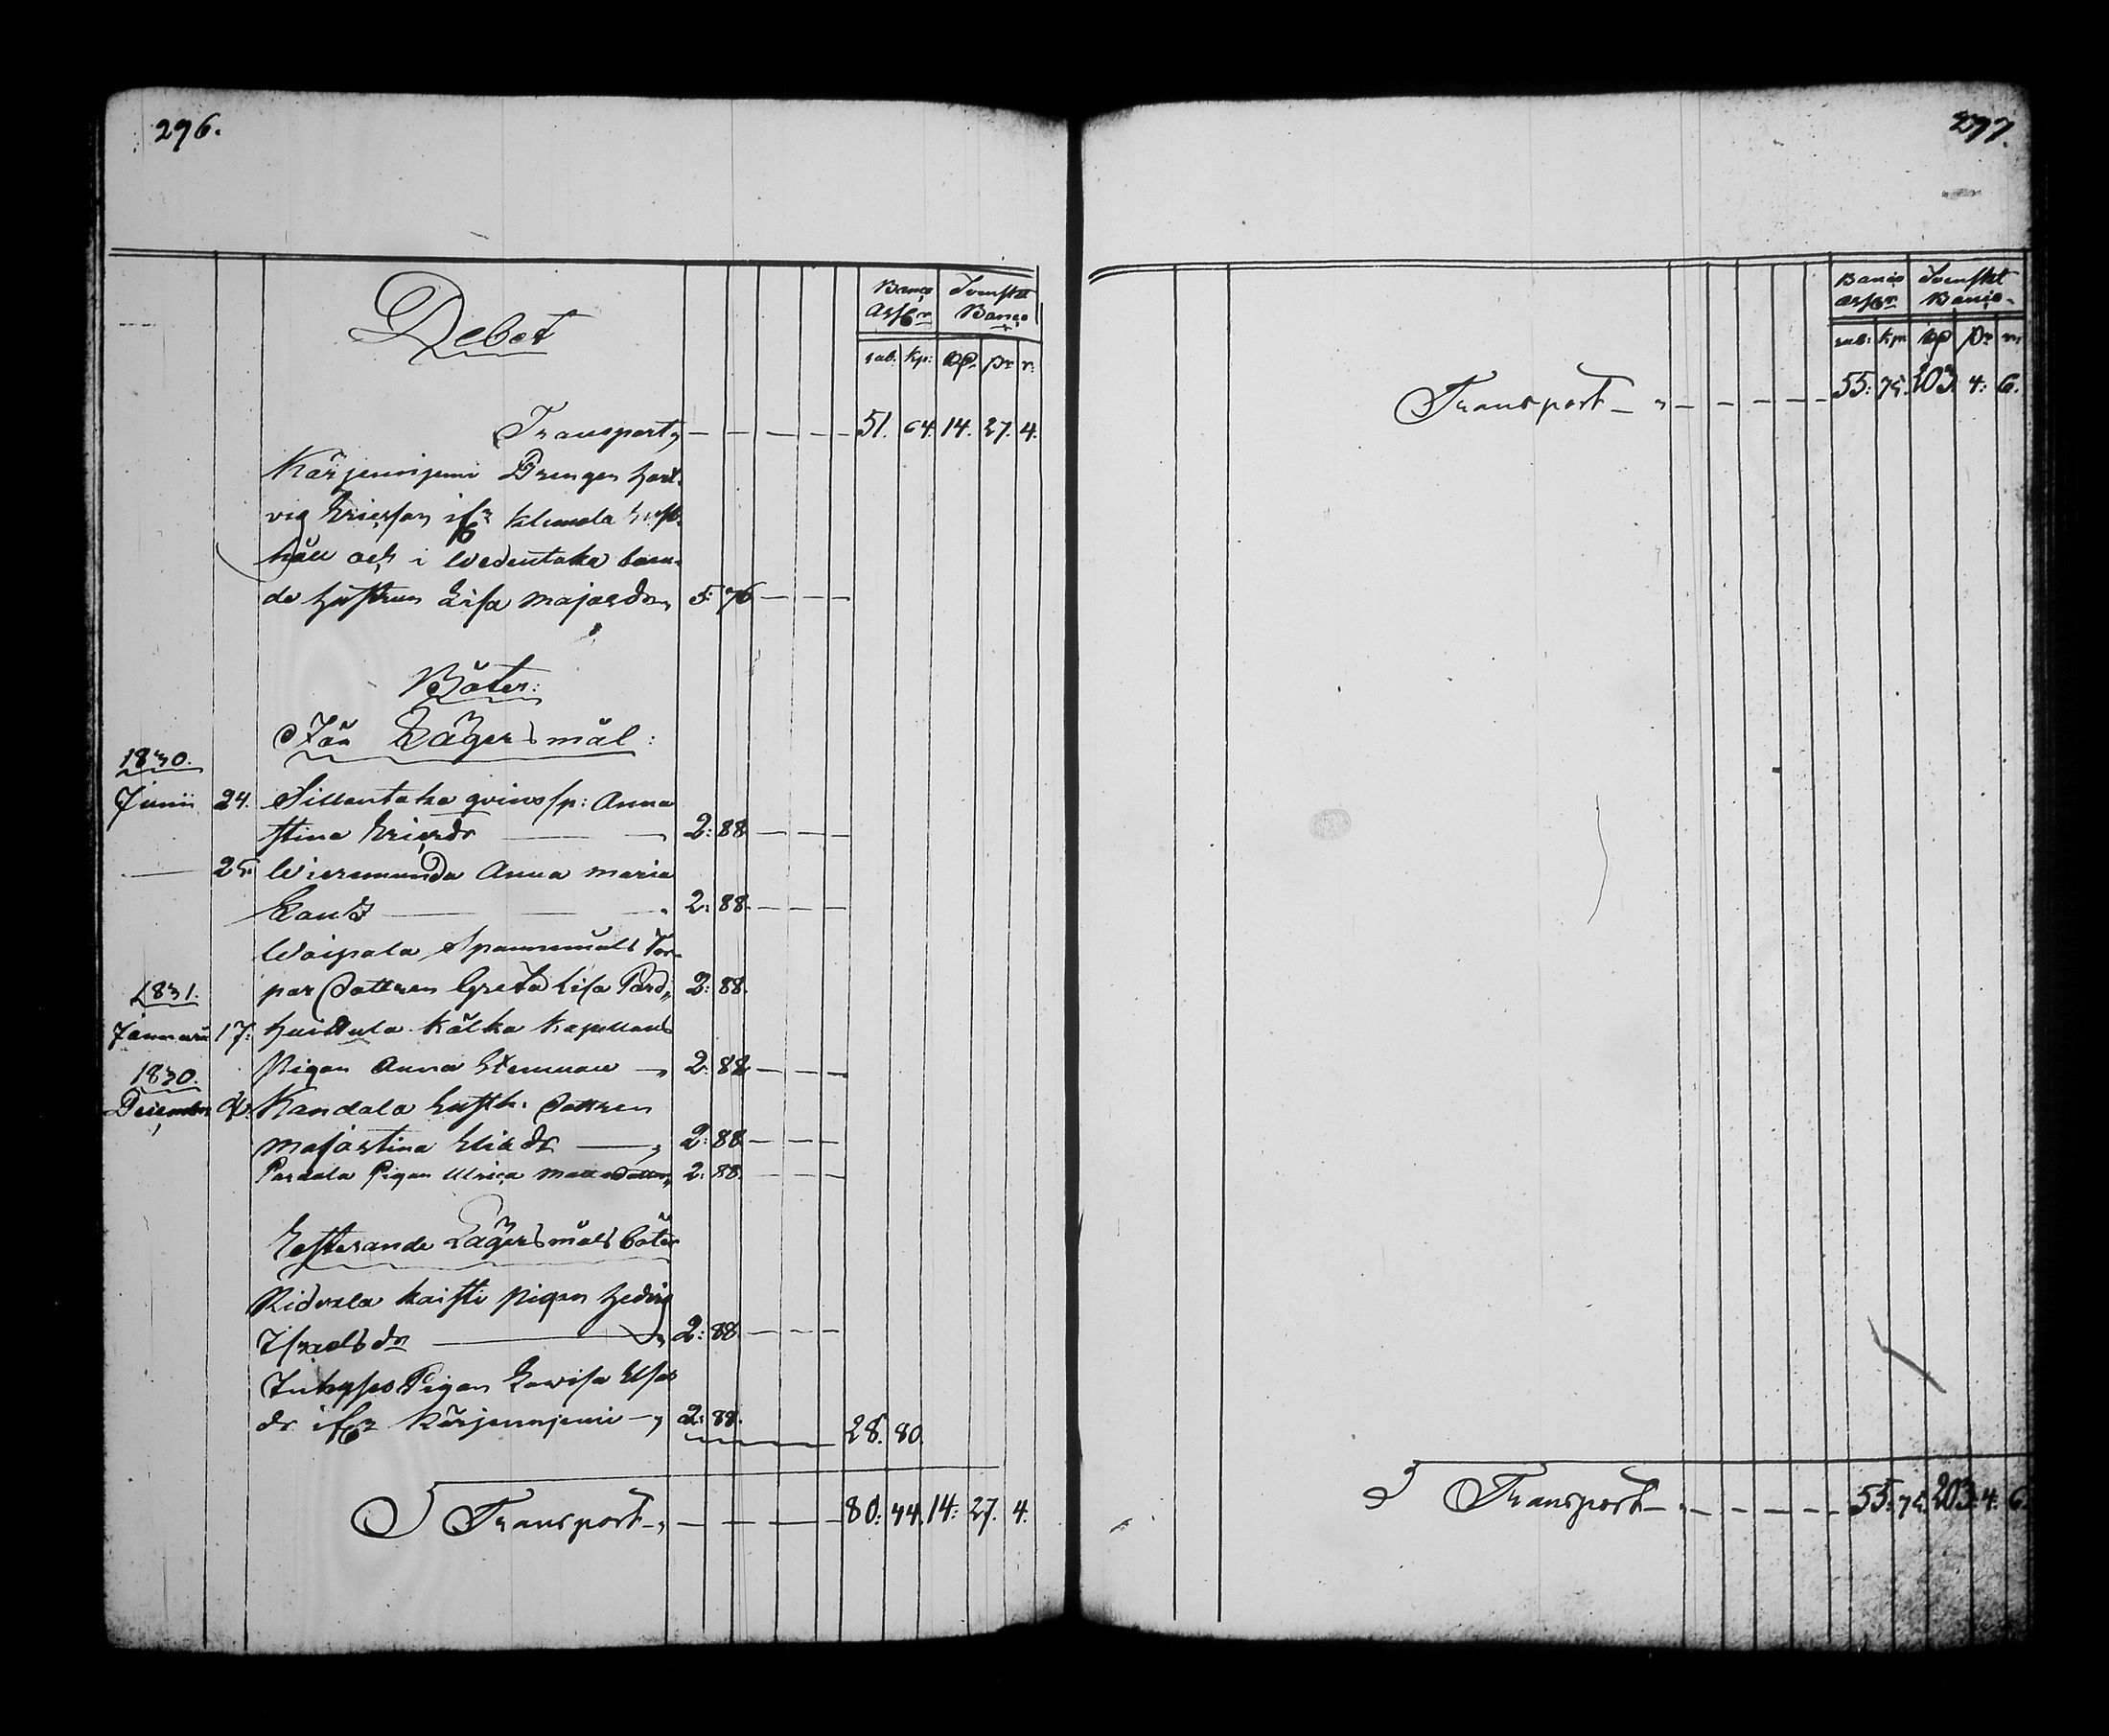 296.
Debet
Banco Svenskt
Assgr Banco
rub. kp: rp. sr r:
Transport, 51. 64. 14. 27. 4.
Kärjenniemi Drengen Hart-
vig Ericsson ifr Klemola
håll och i Wedentaka boen-
de hustrun Lisa Majasdr, 5: 76
Böter:
Från Lägersmål:
1830.
Junii 24. Sillantaka qvinsp: Anna
Stina Ericsdr 2: 88.
25. Wiermunda Anna Maria
2: 88.
Waipala Spannmåls Tor-
1831.
par Dottren Greta Lisa 2: 88.
Januari 17. Huittula Kälka Kapellans
1830. Pigan Anna 2: 88.
December Kandala Husth. Dottren
Majastina Eliædr 2: 88.
Pardala Pigan Ulrica Mattsdotter, 2: 88.
Resterande Lägersmåls böter
Ridvala Kaisti Pigan Hedvig
Israelsdr 2: 88.
Pigan Lovisa Esas
dr ifr Kärjenniemi 2: 88. 28. 80.
Transport, 80: 44. 14: 27. 4.
297.
Banco Svenskt
Assgr Banco
rub: kp rp sr r
Transport 55: 75. 203. 4: 6.
Transport 55: 75. 203: 4: 6.